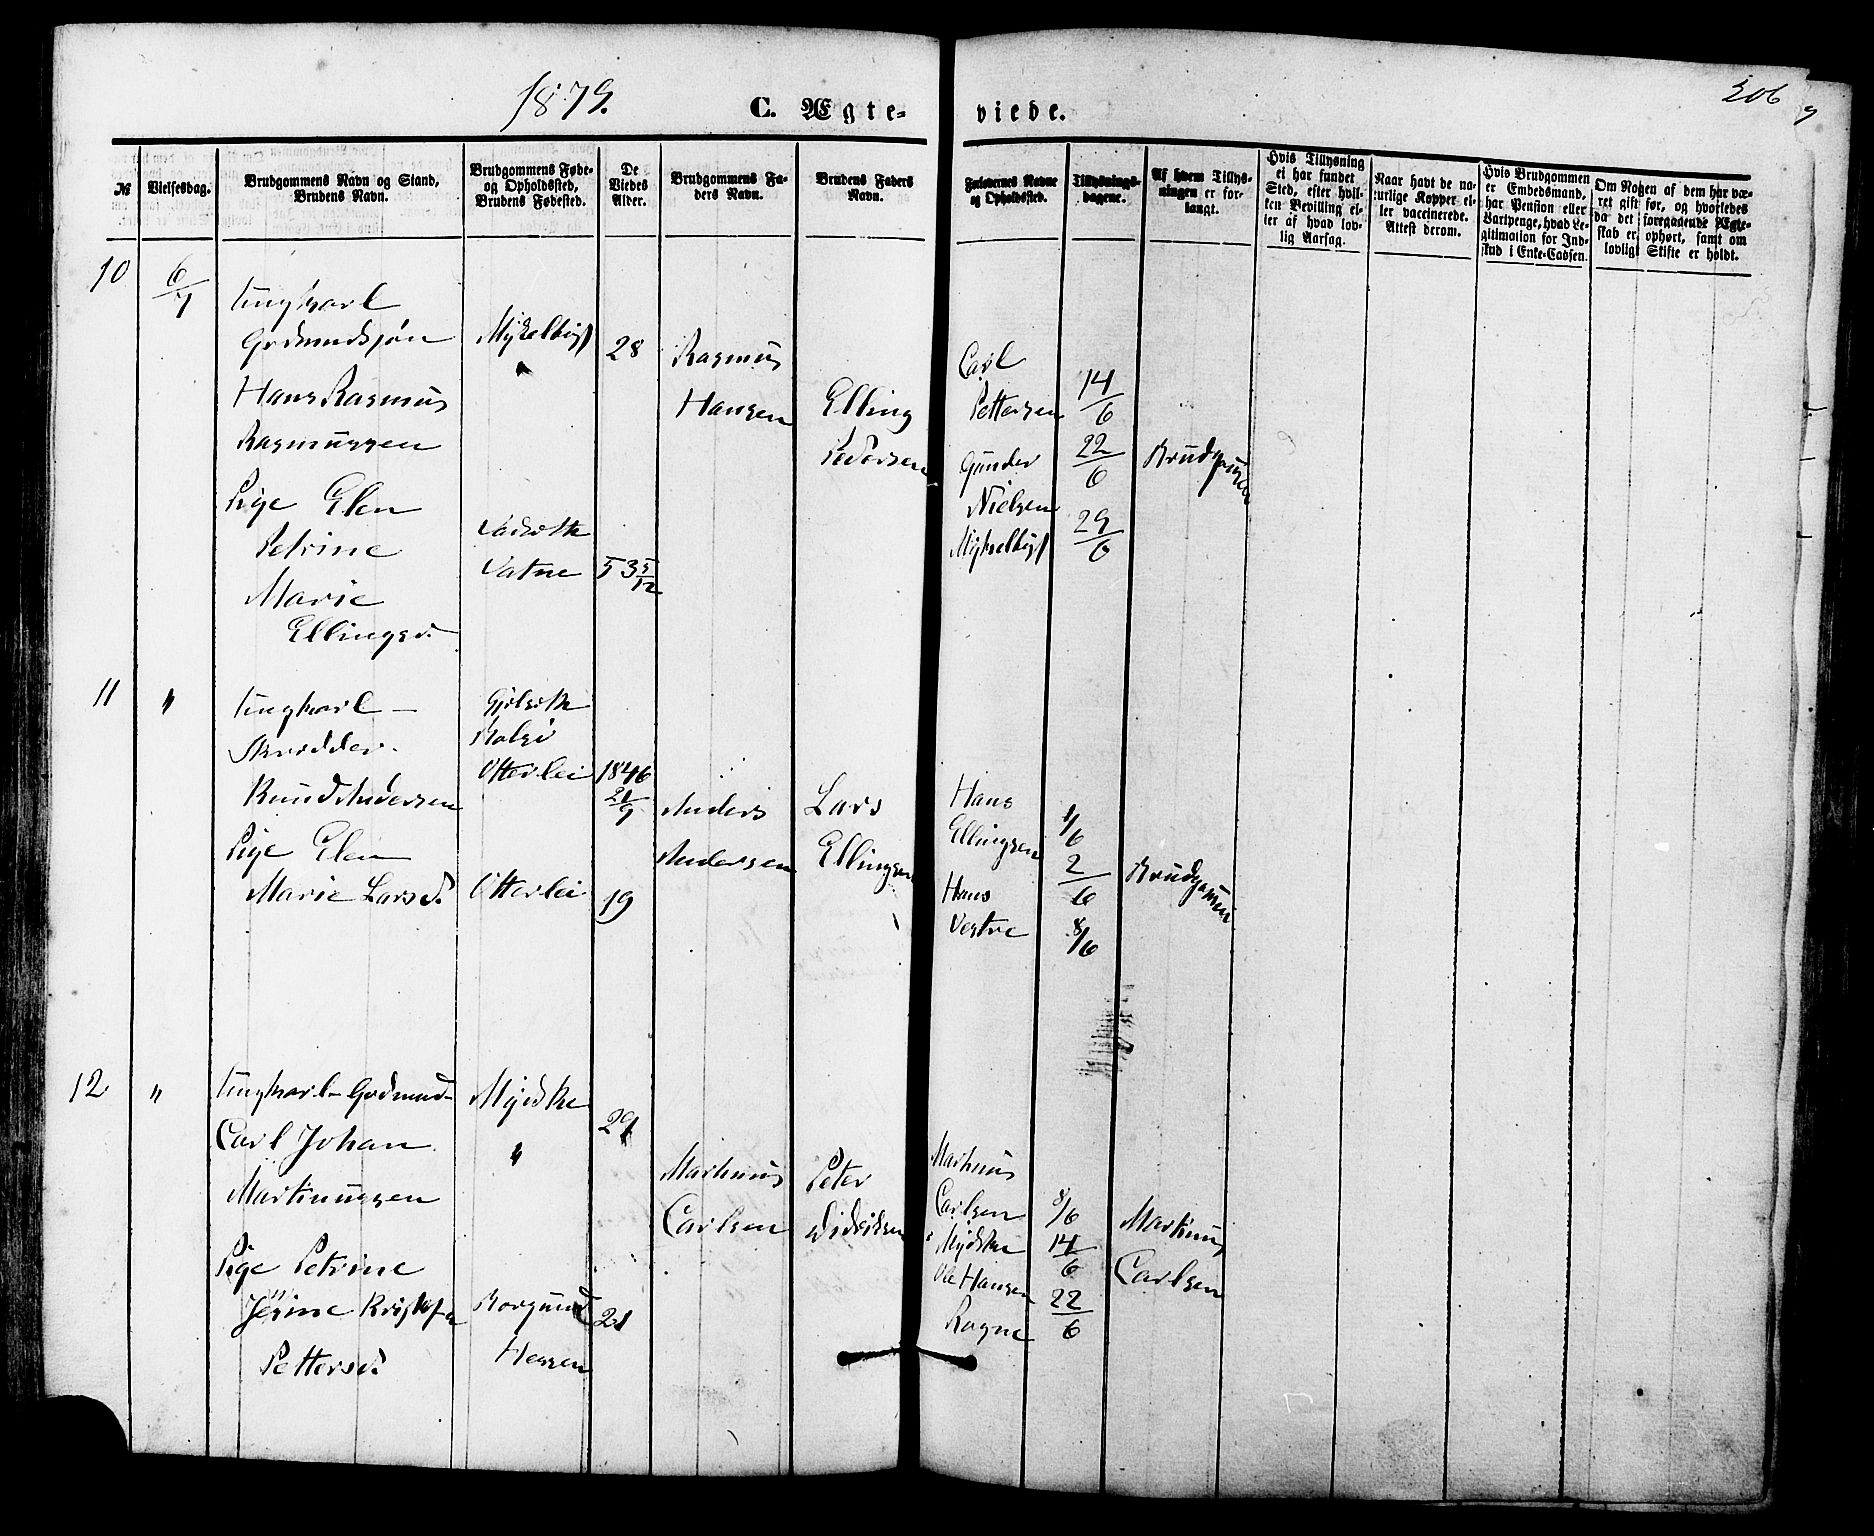 1879.
C. Ægte-
viede.
206
№
Vielsesdag.
Brudgommens Navn og Stand,
Brudens Navn.
Brudgommens Føde-
og Opholdssted,
Brudens Fødested.
De
Viedes
Alder.
Brudgommens Fa-
ders Navn.
Brudens Faders
Navn.
Forlovernes Navne
og Opholdssted.
Tillysnings-
dagene.
Af hvem Tillys-
ningen er for-
langt.
Hvis Tillysning
ei har fundet
Sted, efter hvil-
ken Bevilling el-
ler af hvad lov-
lig Aarsag.
Naar havt de na-
turlige Kopper el-
ler vaccinerede.
Attest derom.
Hvis Brudgommen
er Embedsmand,
har Pension eller
Vartpenge, hvad Le-
gitimation for Ind-
skud i Enke-Cassen.
Om Nogen af dem har væ-
ret gift før, og hvorledes
da det foregaaende Ægte-
skab er ophørt, samt om
lovligt Skifte er holdt.
10
6/7
Ungkarl
Godmundsjøn
Hans Rasmus
Rasmussen
Pige Elen
Petrine
Marie
Ellingsd.
Vatne
28
53 5/12
Rasmus
Hansen
Elling
Pedersen
Carl
Pettersen
Gunder
Nielsen
14/6
22/6
29/6
Brudgommen
11
"
Ungkarl –
Skrædder.
Knud Andersen
Pige Elen
Marie Larsd.
Otterlei
Otterlei
1846
21/9
19
Anders
Andersen
Lars
Ellingsen
Hans
Ellingsen
Hans
Vestre
1/6
2/6
8/6
Brudgommen
12
"
Ungkarl – Godmund-
Carl Johan
Martinussen
Pige Petrine
Jesine
Pettersd.
"
Borgund
Hessen
29
21
Martinus
Carlsen
Peter
Didriksen
Martinus
Carlsen
Ole Hansen
Rogne
8/6
14/6
22/6
Martinus
Carlsen